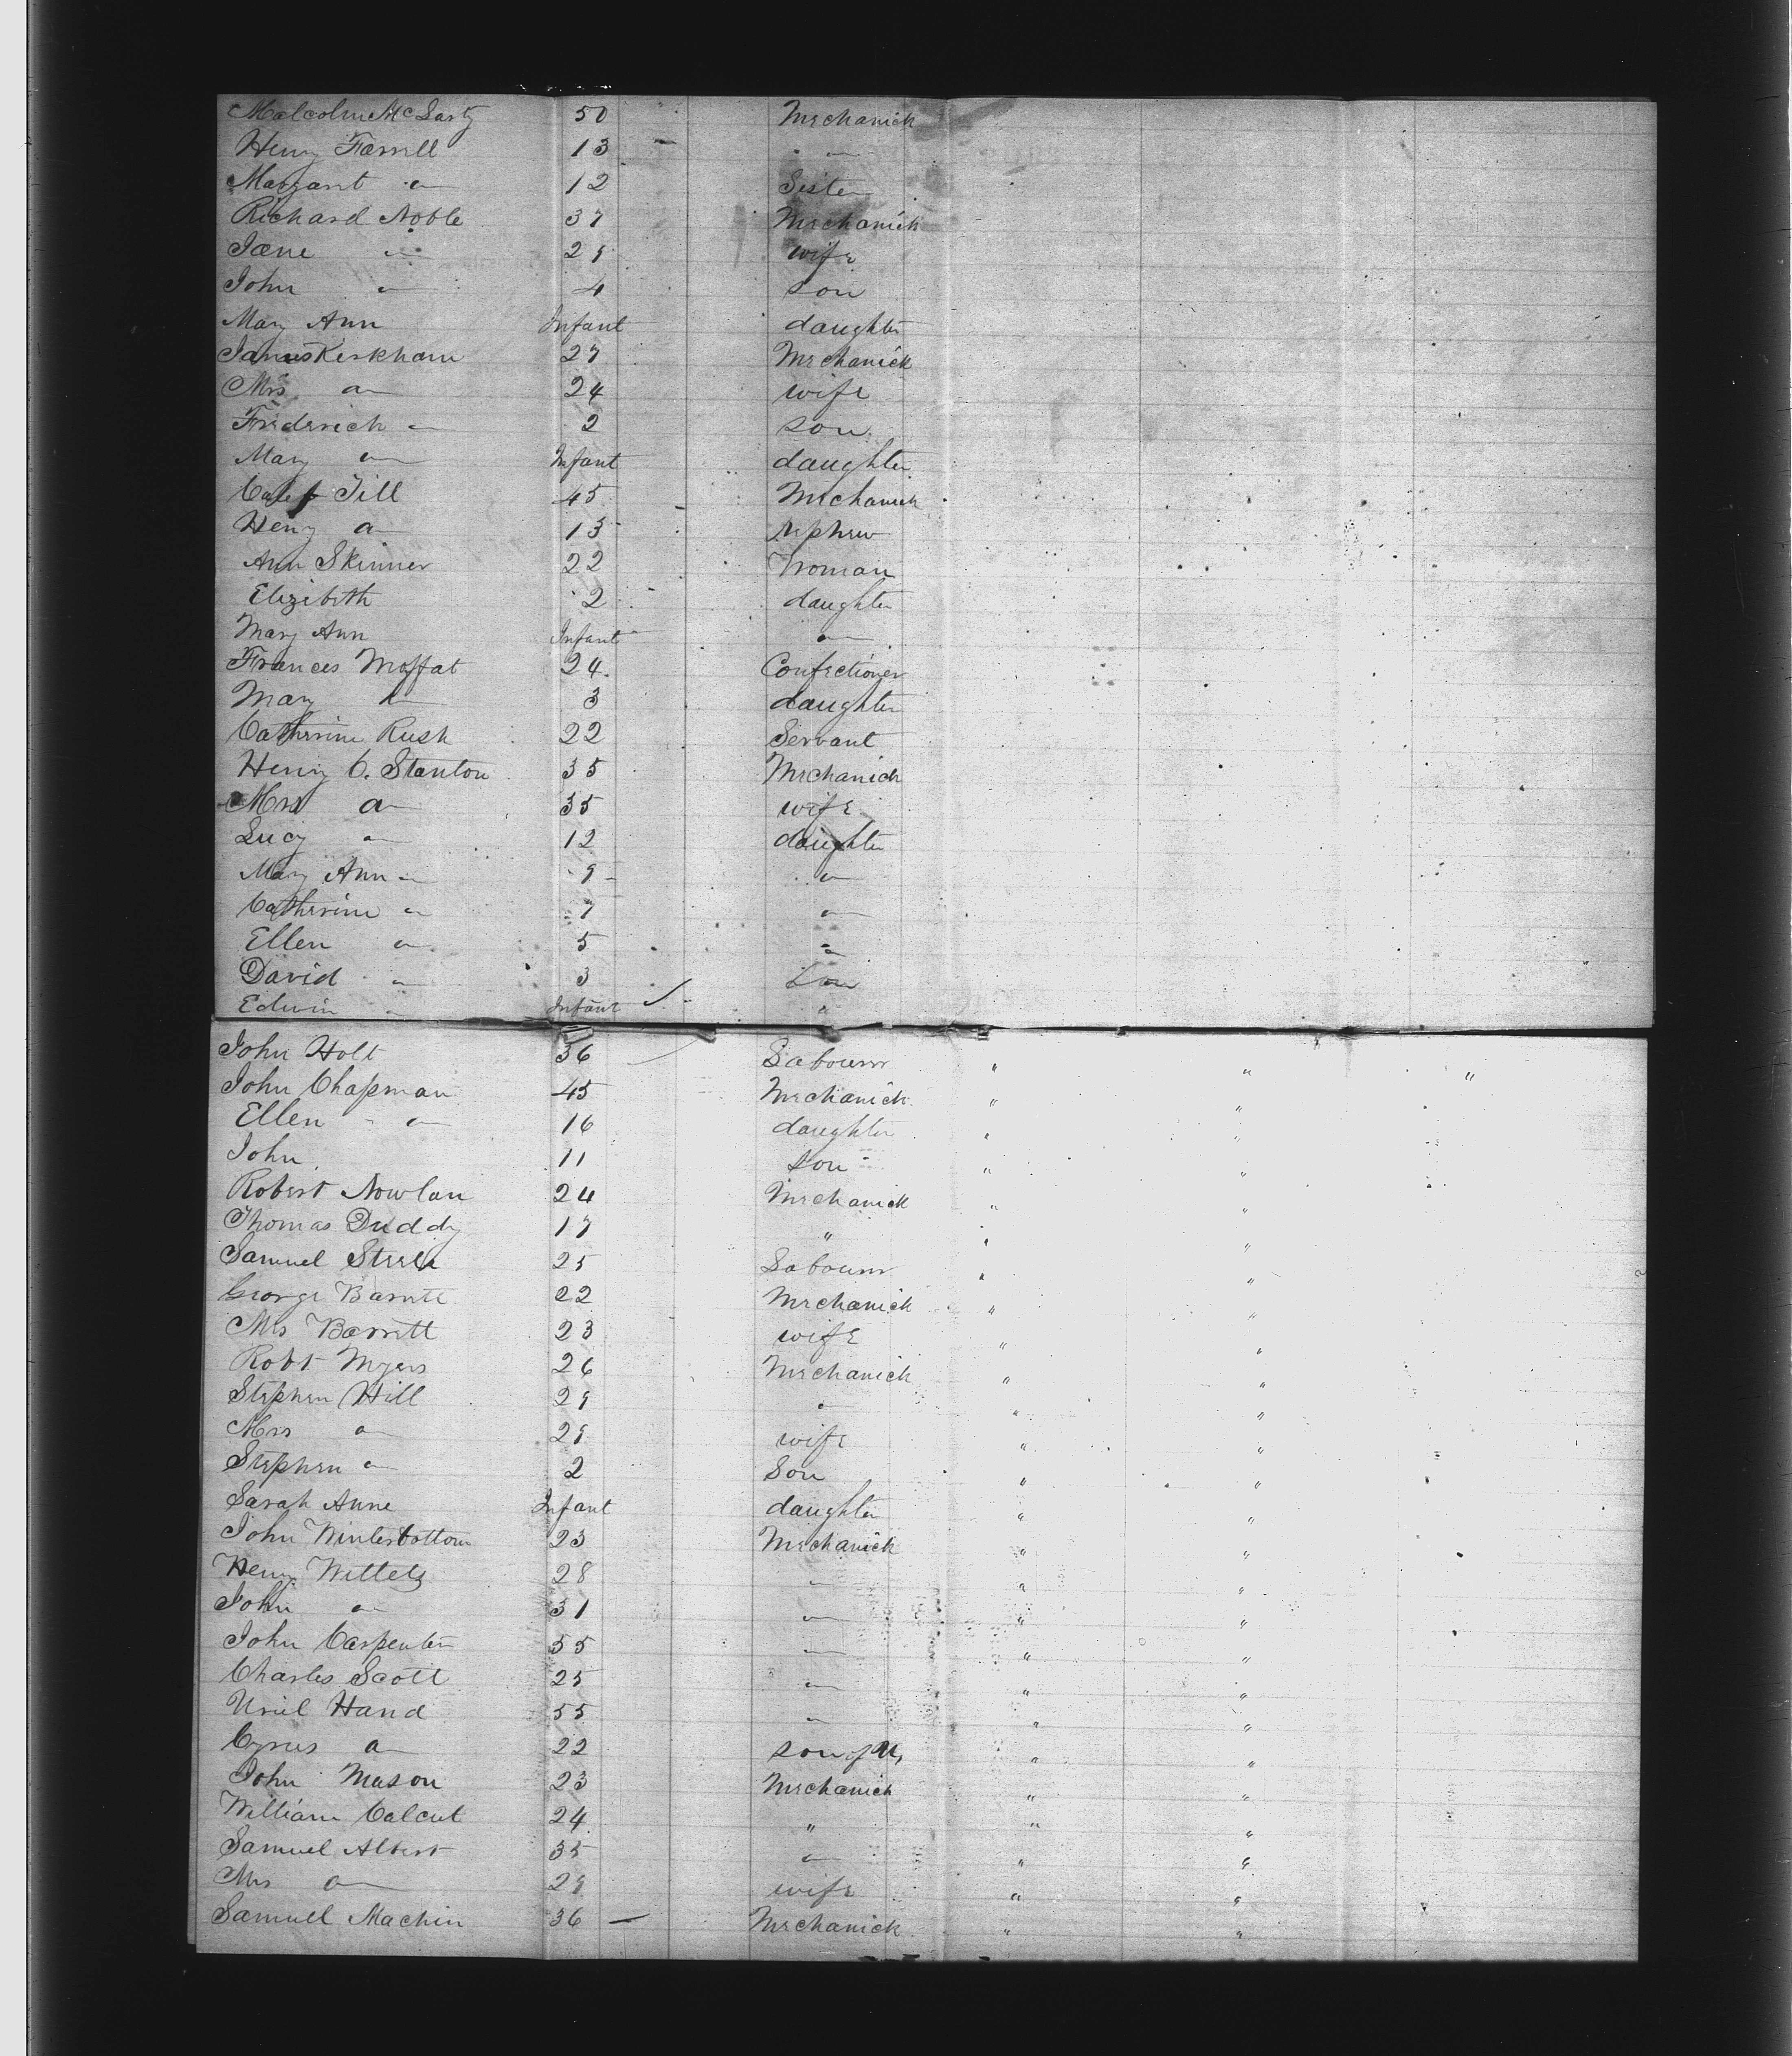 Malcolm McLarty 50 Mechanick
Henry Farrell 13 "
Margaret " 12 Sister
Richard Noble 37 Mechanick
Jane " 29 wife
John " 4 son
Mary Ann Infant daughter
James Kirkham 27 Mechanick
Mrs " 24 wife
Frederick " 2 son
Mary " Infant daughter
Till 45 Mechanick
Henry " 13 Nephew
Ann Skinner 22 Woman
Elizibeth 2 daughter
Mary Ann Infant "
Frances Moffat 24 Confectioner
Mary " 3 daughter
Catherine Rush 22 Servant
Henry C. Stanton 35 Mechanick
Mrs " 35 wife
Lucy " 12 daughter
Mary Ann " 9 "
Catherine " 7 "
Ellen " 5 "
David " 3 Son
Edwin " Infant "
John Holt 36 Labourer " " "
John Chapman 45 Mechanick " "
Ellen " 16 daughter " "
John 11 son " "
Robert Nowlan 24 Mechanick " "
Thomas Duddy 17 " " "
Samuel Steele 25 Labourer " "
George Barrett 22 Mechanick " "
Mrs Barrett 23 wife " "
Robt Myers 26 Mechanick " "
Stephen Hill 29 " " "
Mrs " 29 wife " "
Stephen " 2 Son " "
Sarah Anne Infant daughter " "
John Winterbottom 23 Mechanick " "
Henry 28 " " "
John " 31 " " "
John Carpenter 55 " " "
Charles Scott 25 " " "
Uriel Hand 55 " " "
Cyrus " 22 son of U, " "
John Mason 23 Mechanick " "
William Calcut 24 " " "
Samuel Albert 35 " " "
Mrs " 29 wife " "
Samuel Machin 36 Mechanick " "